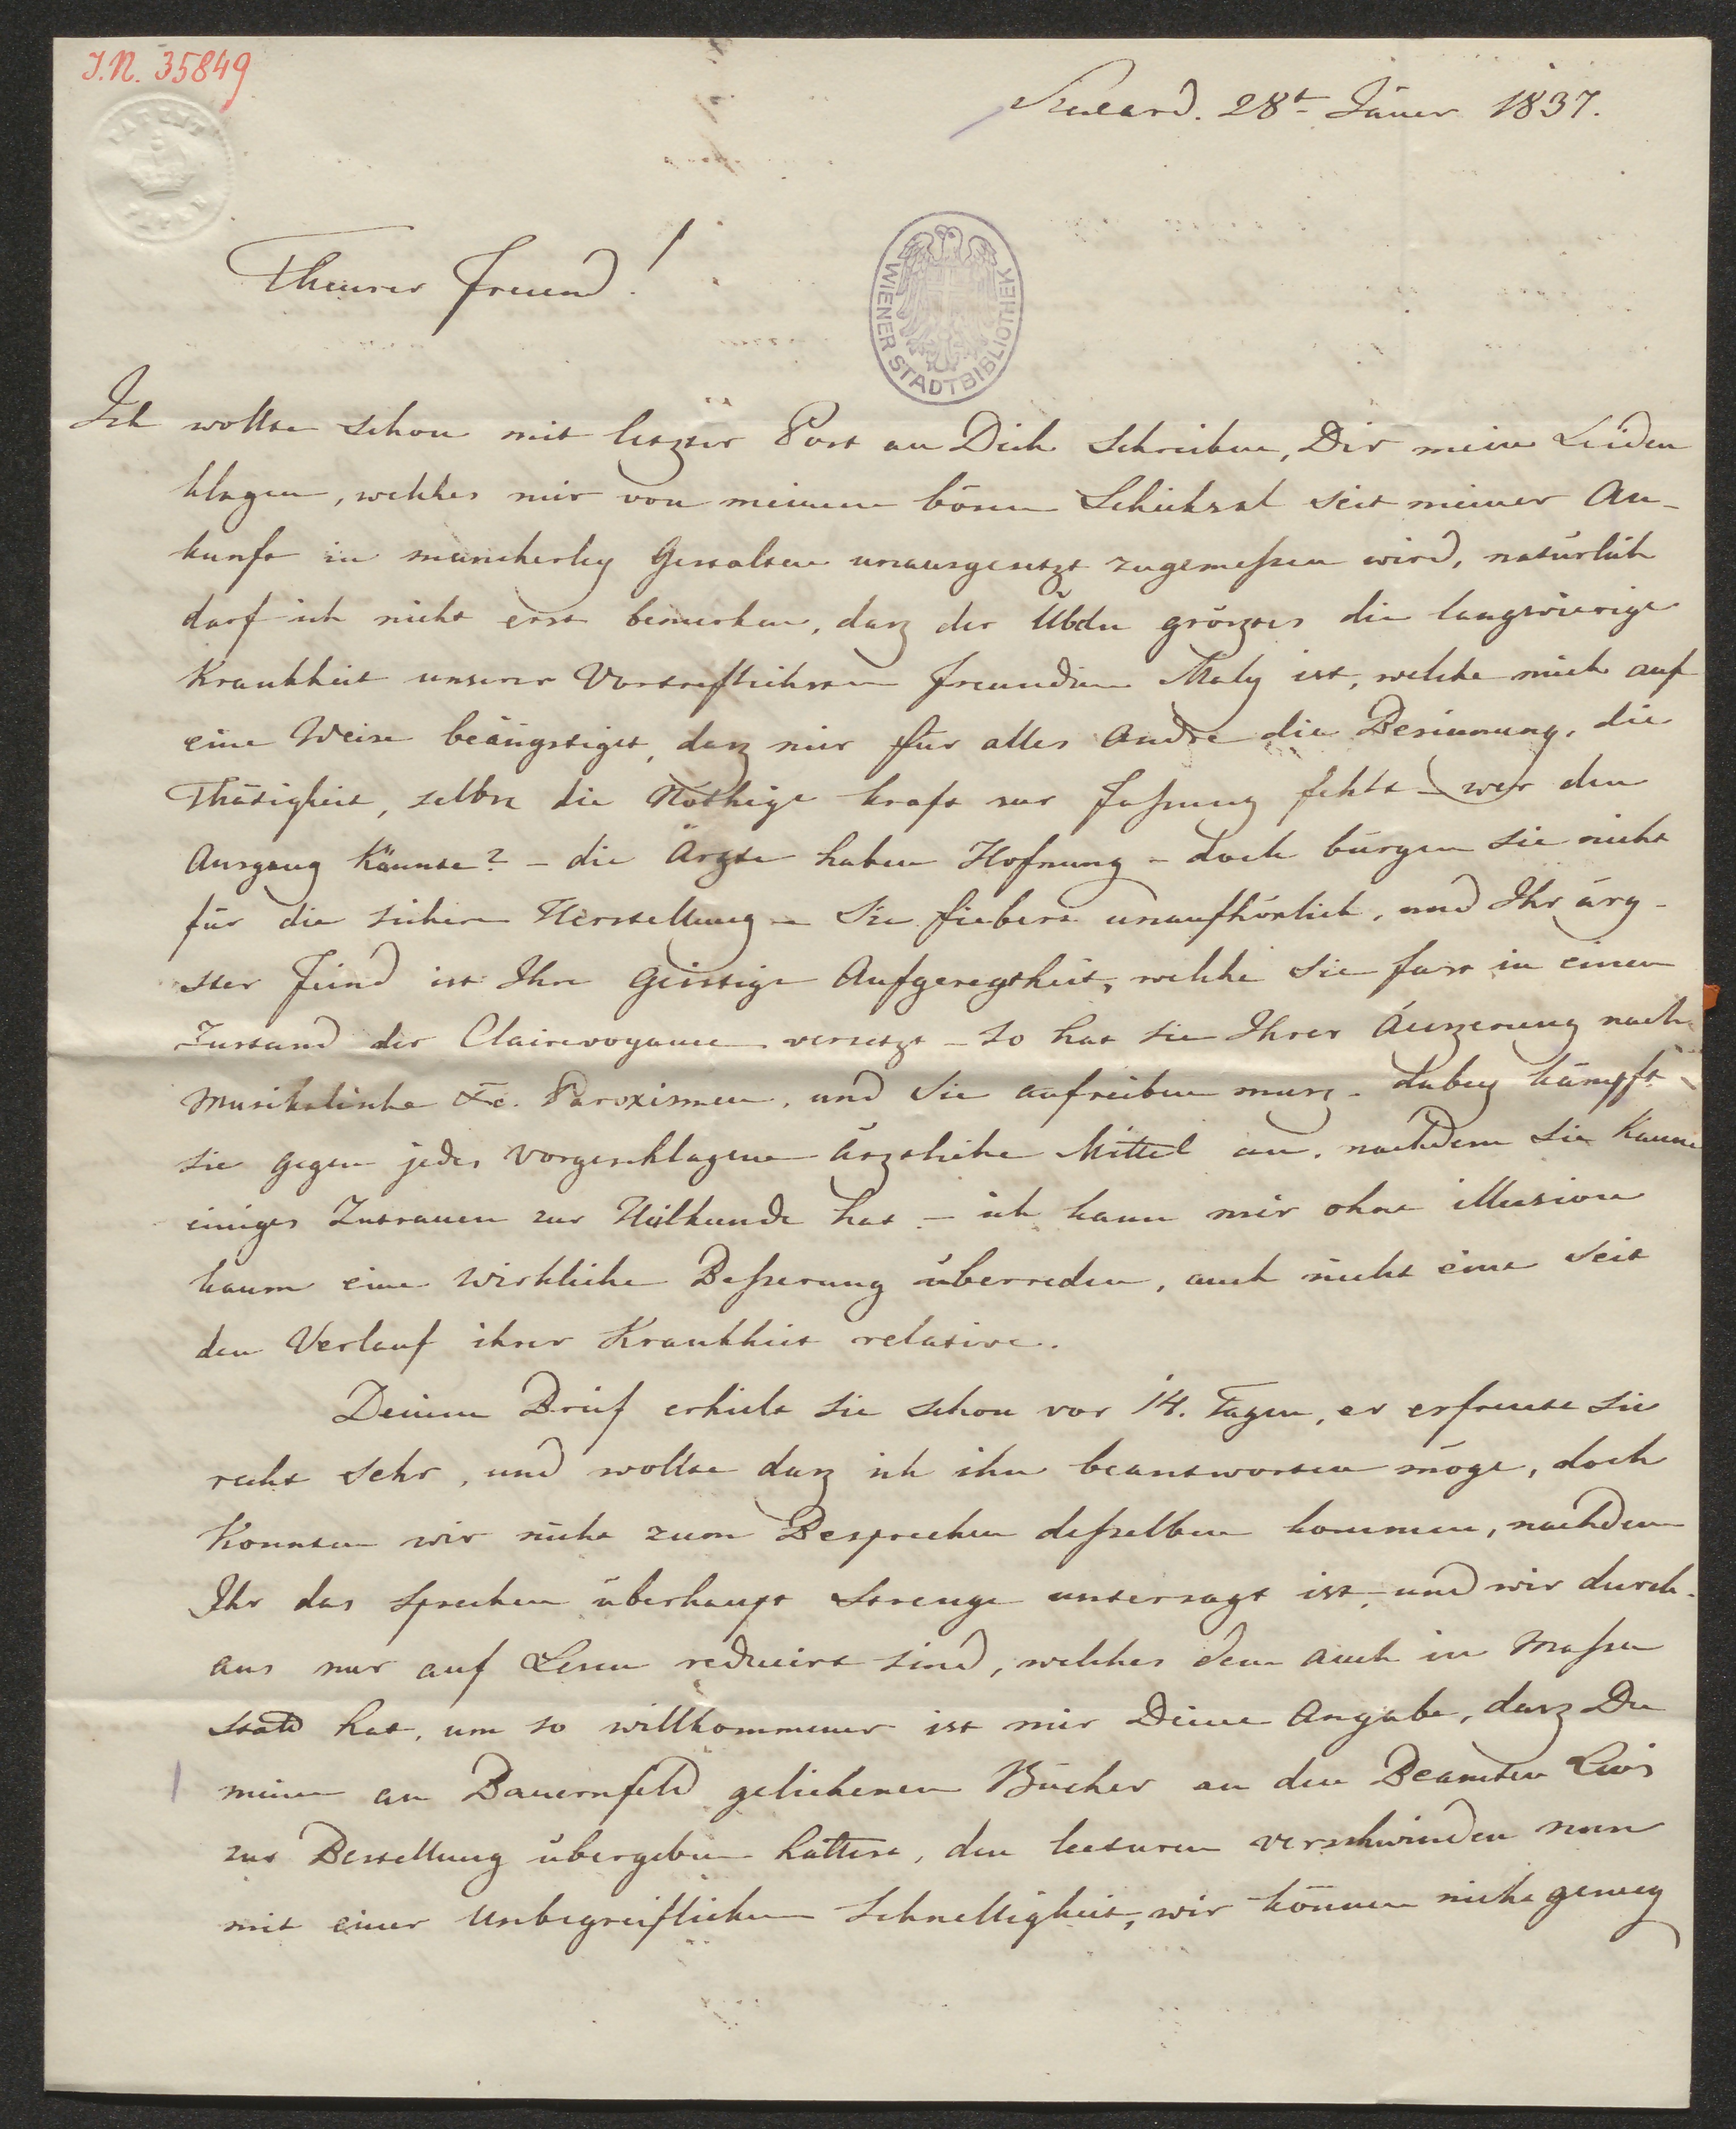 J.N. 35849
28t Jäner 1837.
Theurer Freund!
WIENER STADTBIBLIOTHEK
Ich wollte schon mit letzter Post an Dich schreiben, Dir mein Leiden
klagen, welches mir von meinem bösen Schiksal seit meiner An-
kunft in mancherley Gestalten unausgesetzt zugemeßen wird, natürlich
darf ich nicht erst bemerken, dasz der Übeln gröstes die langwierige
Krankheit unserer Vortreflichsten Freundin Maly ist, welche mich auf
eine Weise beängstiget, dasz mir für alles Andre die Besinnung, die
Thätigkeit, selbst die Nöthige kraft zur Faßung fehlt – wer den
Ausgang kännte? – die Ärzte haben Hofnung – doch bürgen sie nicht
für die sichere Herstellung – Sie fiebert unaufhörlich, und Ihr ärg-
ster Feind ist Ihre Geistige Aufgeregtheit, welche sie fast in einen
Zustand der Clairevoyance versetzt – so hat sie Ihrer Äuszerung nach
Musikalische &c. Paroxismen, und Sie aufreiben musz – dabey kämpft
sie gegen jedes Vorgeschlagene ärztliche Mittel an, nachdem sie kaum
einiges Zutrauen zur Heilkunde hat – ich kann mir ohne illusion
kaum eine Wirkliche Beßerung überreden, auch nicht eine seit
den Verlauf ihrer Krankheit relative.
Deinen Brief erhielt sie schon vor 14. Tagen, er erfreute sie
recht sehr, und wollte dasz ich ihn beantworten möge, doch
Konnten wir nicht zum Besprechen deßelben kommen, nachdem
Ihr das Sprechen überhaupt Strenge untersagt ist, und wir durch-
aus nur auf Lesen reducirt sind, welches denn auch in Maßen
statt hat, um so willkommener ist mir Deine Angabe, dasz Du
meine an Bauernfeld geliehenen Bücher an den Beamten
zur Bestellung übergeben hattest, den lecturen verschwinden nun
mit einer Unbegreiflichen Schnelligkeit, wir können nicht genug